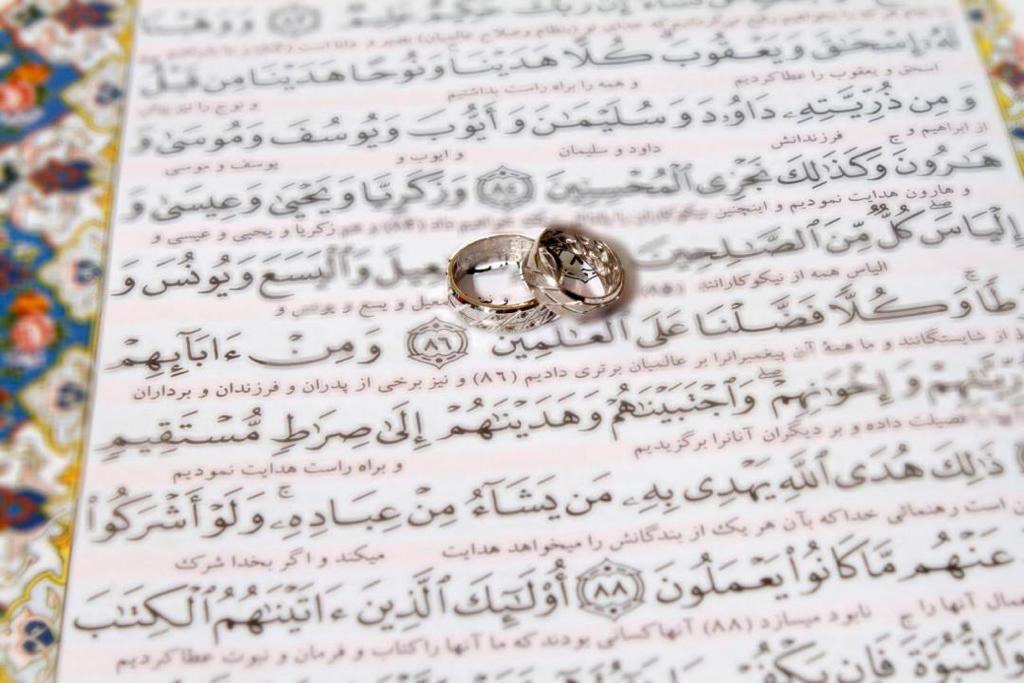 إِنَّ رَبَّكَ حَكِيمٌ عَلِيمٌ ﴿٨٣﴾ وَوَهَبْنَا
لَهُ إِسْحَٰقَ وَيَعْقُوبَ كُلًّا هَدَيْنَا وَنُوحًا هَدَيْنَا مِن قَبْلُ
اسحق و یعقوب را عطا کردیم و همه را براه راست بداشتیم و نوح را نیز پیش
وَمِن ذُرِّيَّتِهِۦ دَاوُۥدَ وَسُلَيْمَٰنَ وَأَيُّوبَ وَيُوسُفَ وَمُوسَىٰ وَ
از ابراهیم و فرزندانش داود و سلیمان و ایوب و یوسف و موسی
هَٰرُونَ وَكَذَٰلِكَ نَجْزِى ٱلْمُحْسِنِينَ ﴿٨٤﴾ وَزَكَرِيَّا وَيَحْيَىٰ وَعِيسَىٰ وَ
و هارون هدایت نمودیم و اینچنین نیکوکاران را داد (۸۴) و هم زکریا و یحیی و عیسی و
إِلْيَاسَ كُلٌّ مِّنَ ٱلصَّٰلِحِينَ عِيلَ وَٱلْيَسَعَ وَيُونُسَ وَ
الیاس همه از نیکوکارانند (۸۵) عیل و یسع و یونس و
طًا وَكُلًّا فَضَّلْنَا عَلَى ٱلْعَٰلَمِينَ ﴿٨٦﴾ وَمِنْ ءَابَآئِهِمْ
از شایستگانند و ما همهٔ آن پیغمبرانرا بر عالمیان برتری دادیم (۸۶) و نیز برخی از پدران و فرزندان و برداران
رِّيَّٰتِهِمْ وَإِخْوَٰنِهِمْ وَٱجْتَبَيْنَٰهُمْ وَهَدَيْنَٰهُمْ إِلَىٰ صِرَٰطٍ مُّسْتَقِيمٍ
فضیلت داده و بر دیگران آنانرا برگزیدیم و براه راست هدایت نمودیم
ذَٰلِكَ هُدَى ٱللَّهِ يَهْدِى بِهِۦ مَن يَشَآءُ مِنْ عِبَادِهِۦ وَلَوْ أَشْرَكُوا۟
است رهنمائی خدا که بآن هر یک از بندگانش را میخواهد هدایت میکند و اگر بخدا شرک
عَنْهُم مَّا كَانُوا۟ يَعْمَلُونَ ﴿٨٨﴾ أُو۟لَٰٓئِكَ ٱلَّذِينَ ءَاتَيْنَٰهُمُ ٱلْكِتَٰبَ
آنها را نابود میسازد (۸۸) آنها کسانی بودند که ما آنها را کتاب و فرمان و نبوت عطا کردیم
وَٱلنُّبُوَّةَ فَإِن يَكْفُرْ